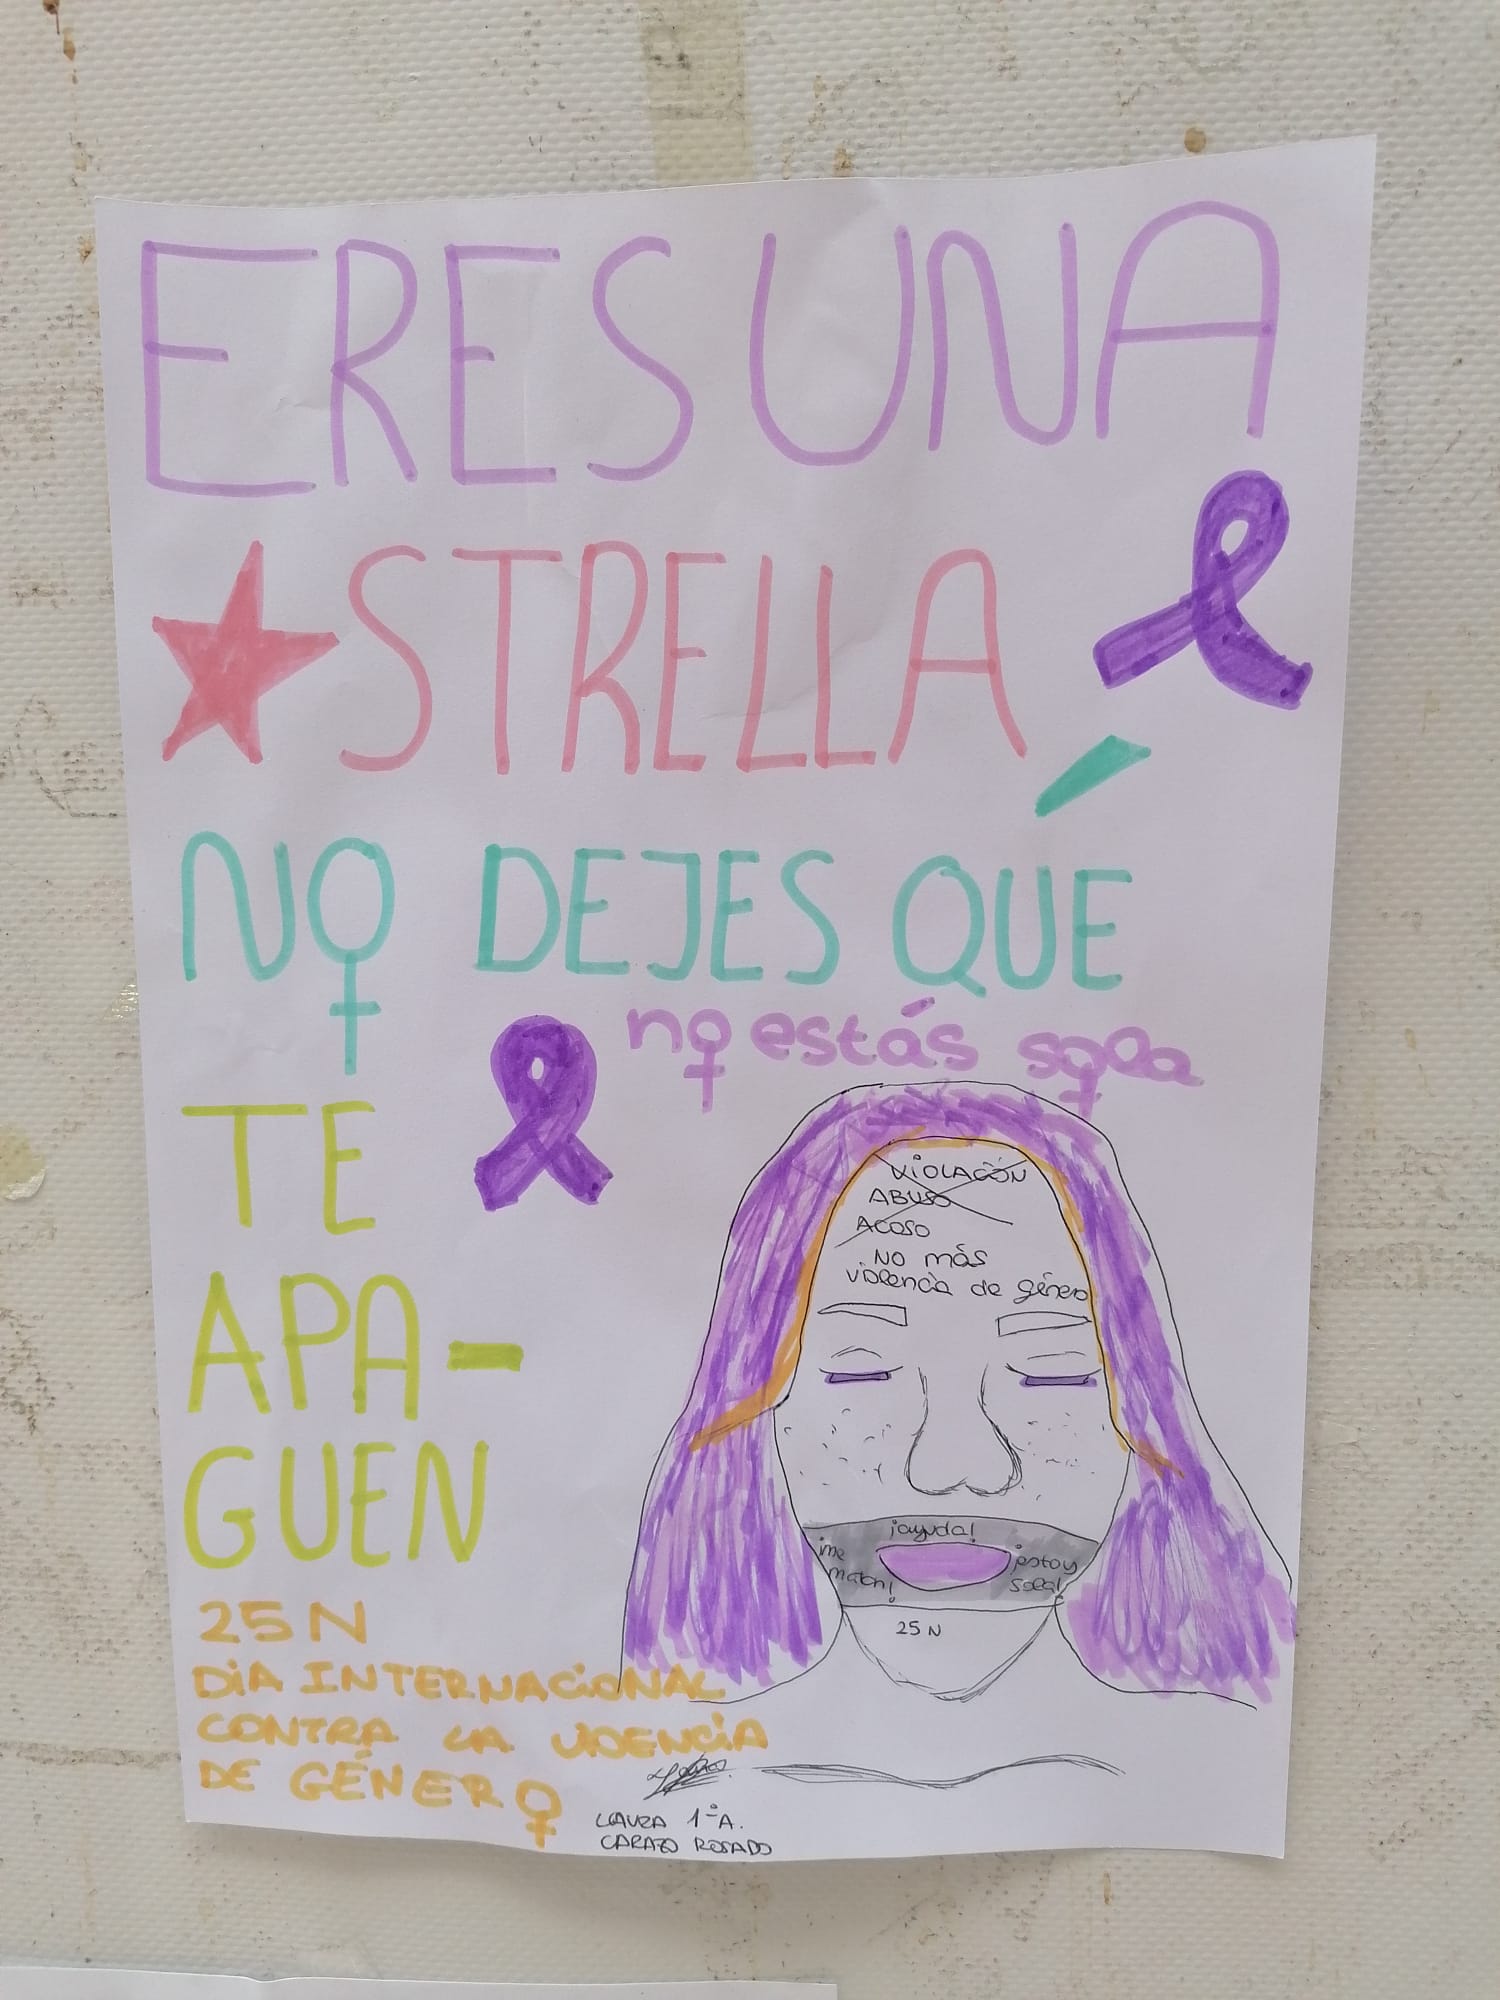 ERES UNA
STRELLA
NO DEJES QUÉ
no estás sola
TE
APA-
GUEN
VIOLACIÓN
ABUSO
ACOSO
NO más
violencia de género
¡ayuda!
¡me
matan!
¡estoy
sola!
25 N
25 N
DÍA INTERNACIONAL
CONTRA LA VIOLENCIA
DE GÉNERO
LAURA 1ºA.
CARAZO ROSADO